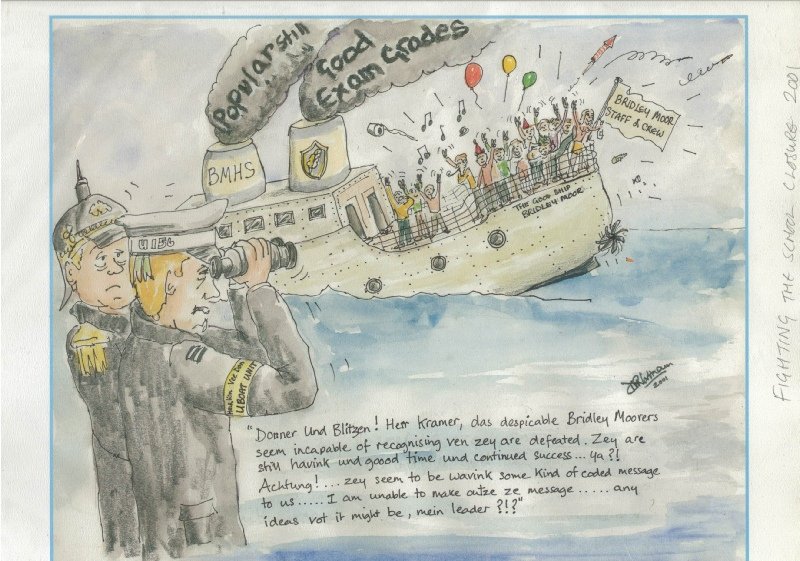 Popular still
Good
Exam Grades
BMHS
BRIDLEY MOOR
STAFF & CREW
THE GOOD SHIP
BRIDLEY MOOR
U156
U BOAT UNIT
2001
"Donner Und Blitzen! Herr Kramer, das despicable Bridley Moorers
seem incapable of recognising ven zey are defeated. Zey are
still havink und goood time und continued success... ya?!
Achtung!.... zey seem to be wavink some kind of coded message
to us..... I am unable to make outze ze message ..... any
ideas vot it might be, mein leader?!?"
FIGHTING THE SCHOOL CLOSURE 2001